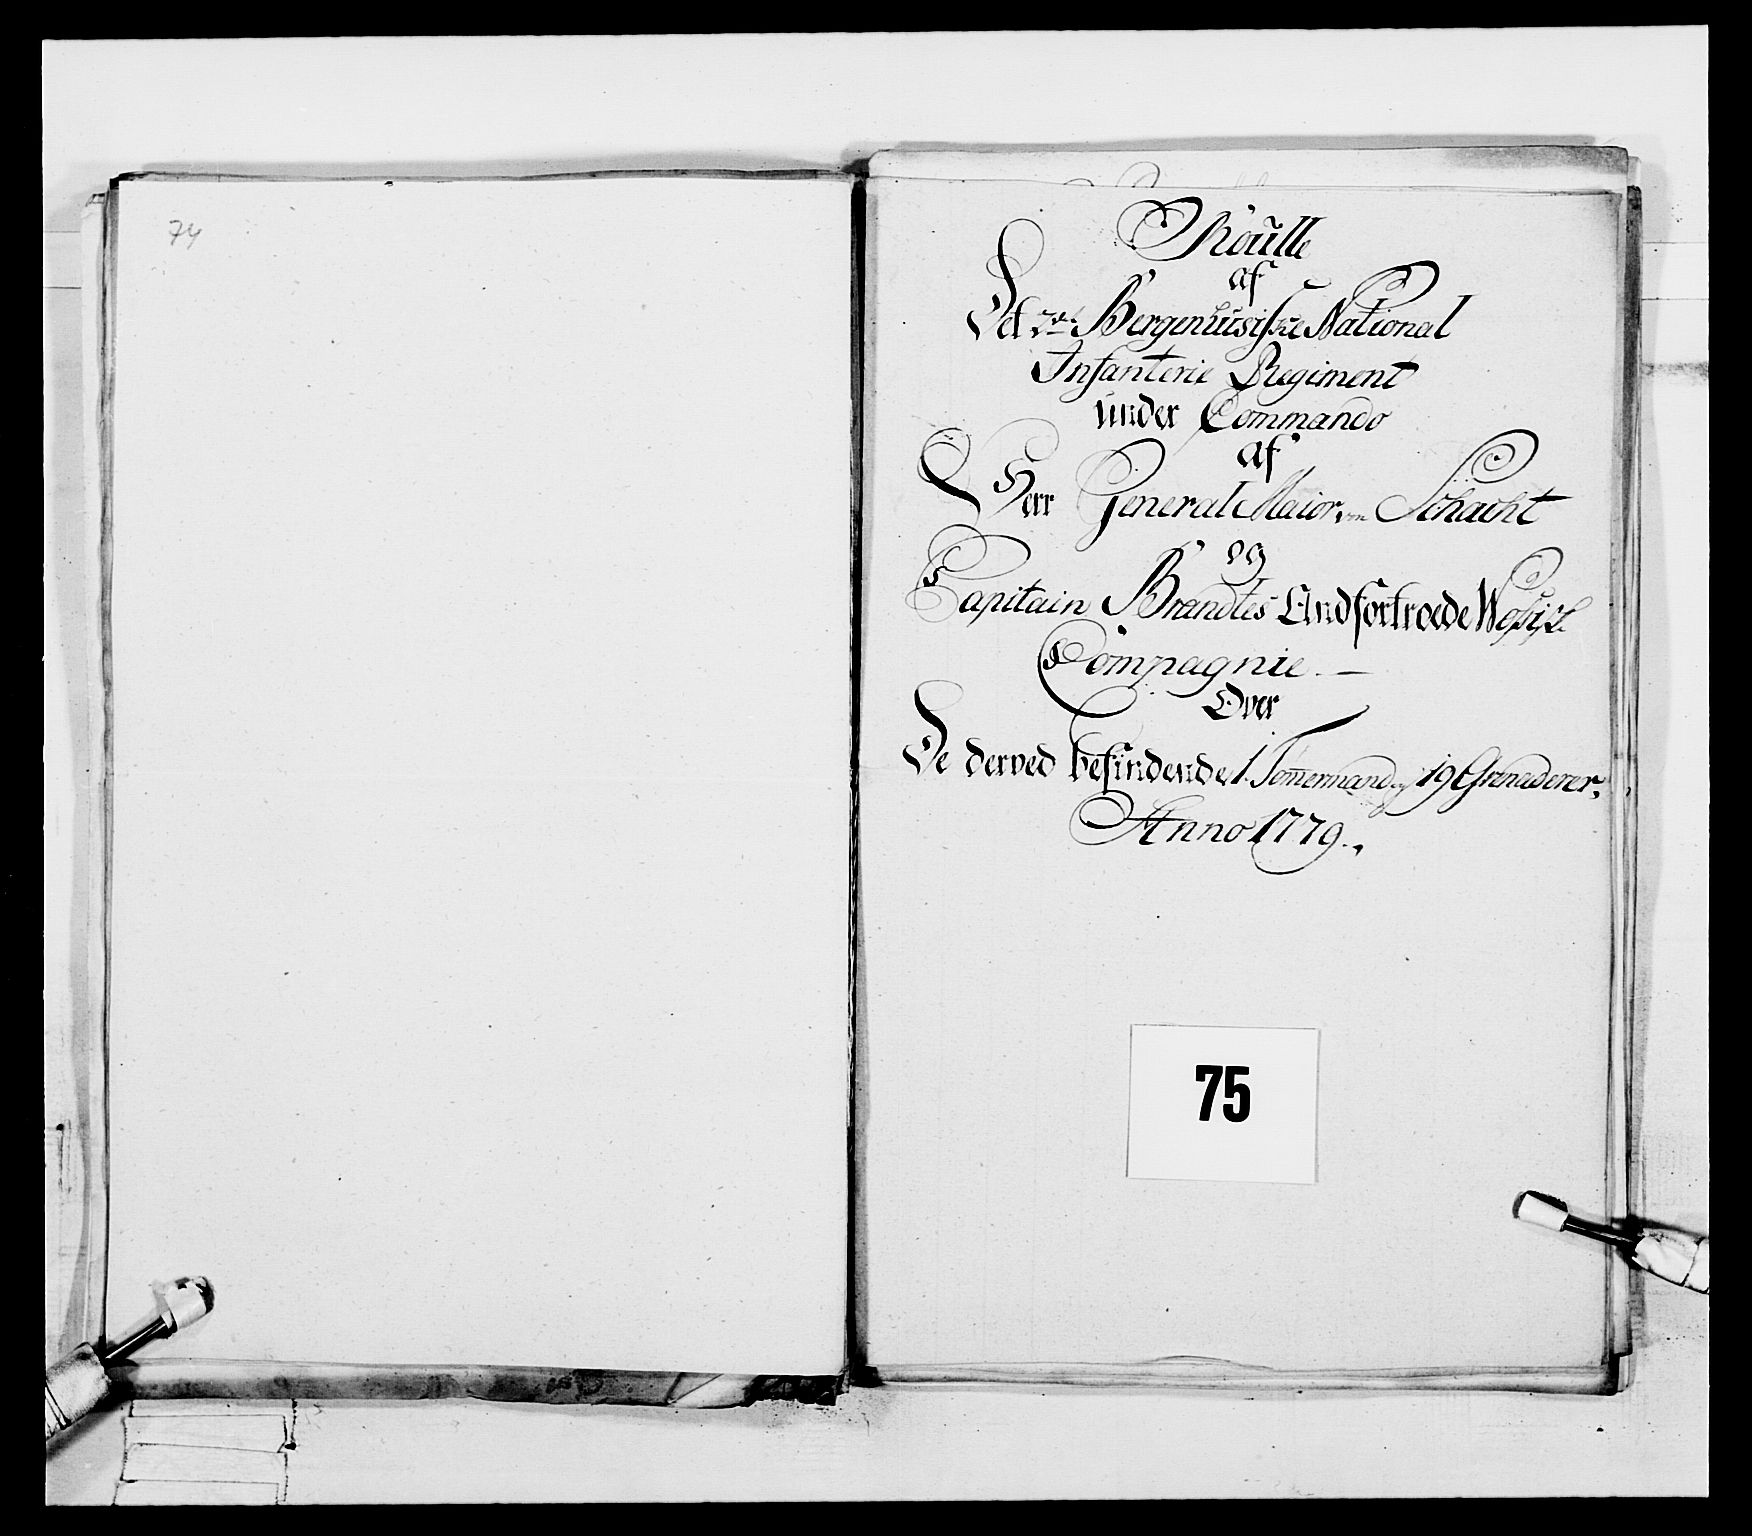 74
Roulle
af
Det 2det Bergenhusiske National
Infanterie Regiment
under Commando
af
Herr General Maior von Schacht
og
Capitain Brandtes Andfortroede Wossiske
Compagnie. —
Over
De derved befindende 1. Tømermand og 19 Grenaderer,
Anno 1779.,
75